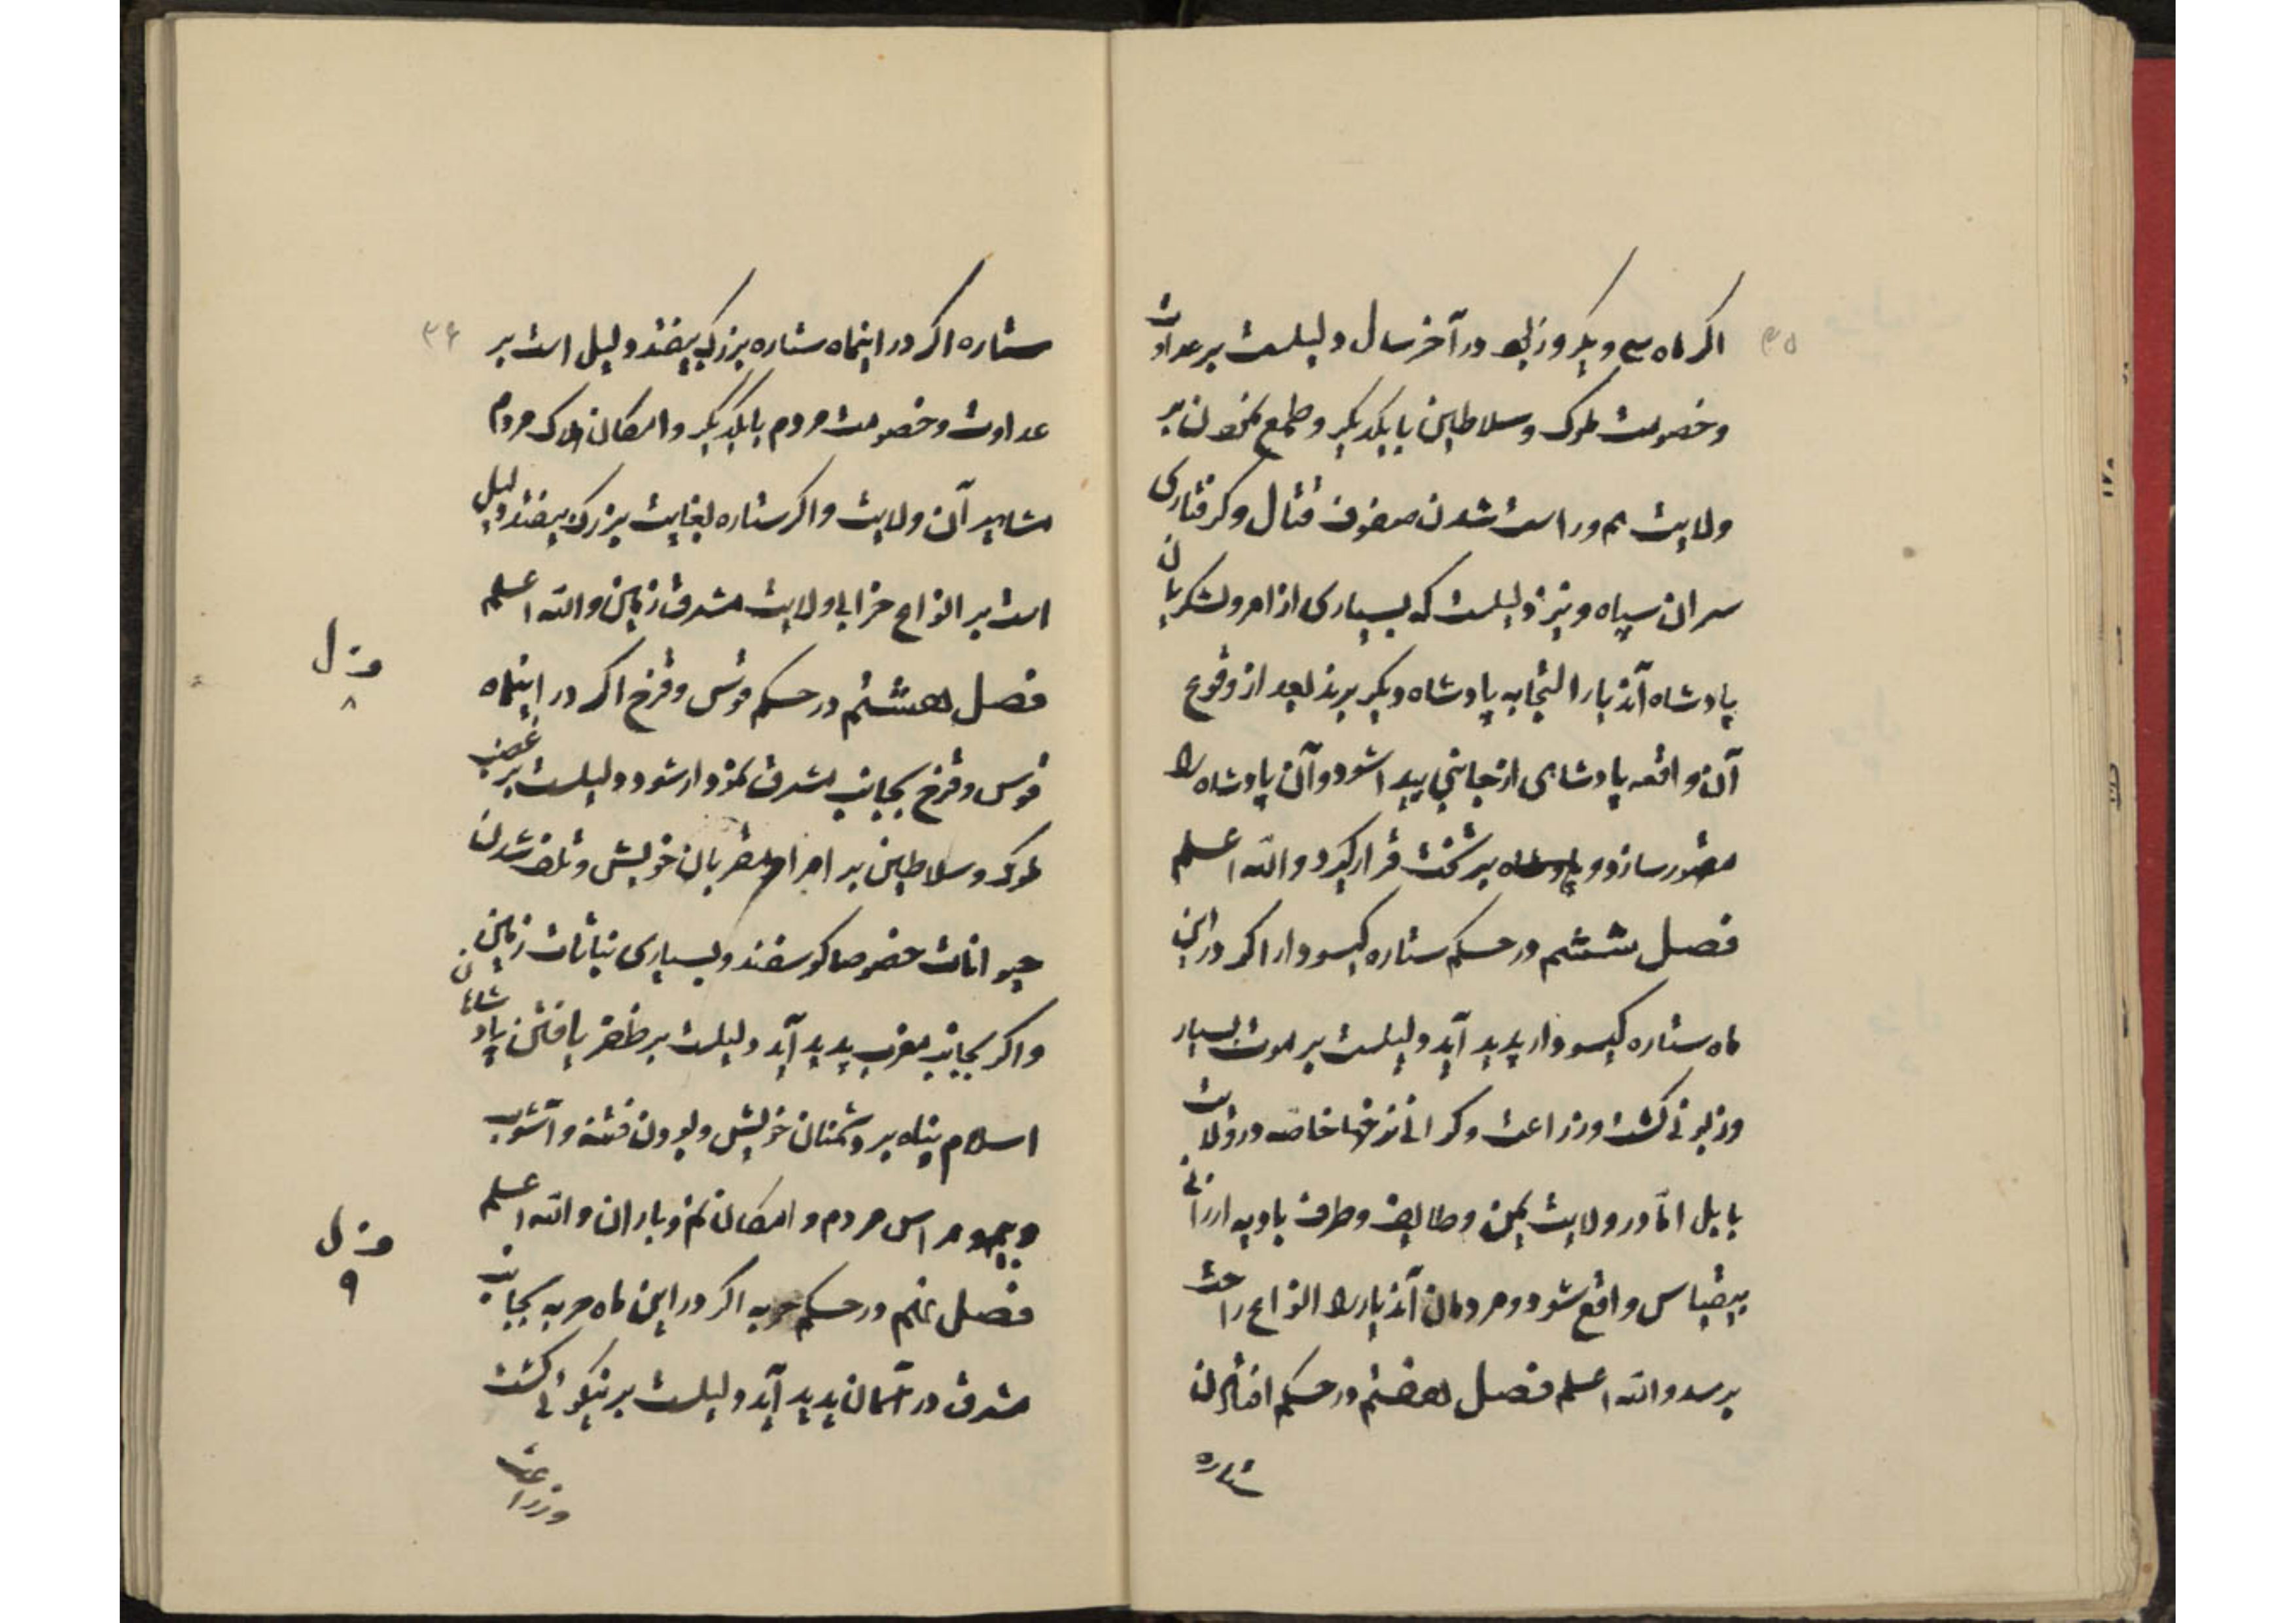 ۳۵
اکر ماه سی و یکروز بود در آخر سال دلیلست بر عداوت
و خصومت ملوک و سلاطین بایکدیکر و طمع نمودن بر
ولایت هم و راست شدن صفوف قتال و کرفتاری
سران سپاه و نیز دلیلست که بسیاری از امر و لشکریان
پادشاه آندیار التجا به پادشاه دیکر برند بعد از وقوع
آن واقعه پادشاهی از جانبی پیدا شود و آن پادشاه را
مقهور سازد و بر تخت قرار کیرد و الله اعلم
فصل ششم در حکم ستاره کیسو دار اکر در این
ماه ستاره کیسو دار پدید آید دلیلست بر موت بسیار
و زبونی کشت و زراعت و کرانی نرخها خاصه در ولایت
بابل امّا در ولایت یمن و طایف و طرف بادیه ارزانی
بیقیاس واقع شود و مردمان آندیار را انواع راحت
برسد و الله اعلم فصل هفتم در حکم افتادن
ستاره
۳۶
ستاره اکر در اینماه ستاره بزرک بیفتد دلیل است بر
عداوت و خصومت مردم بایکدیکر و امکان هلاک مردم
مشاهیر آن ولایت و اکر ستاره بغایت بزرک بیفتد دلیل
است بر انواع خرابی ولایت مشرق زمین و الله اعلم
فصل هشتم در حکم قوس و قزح اکر در اینماه
فصل ۸
قوس و قزح بجانب مشرق نمودار شود دلیلست بر غضب
ملوک و سلاطین بر امرا و مقربان خویش و تلف شدن
حیوانات خصوصا کوسفند و بسیاری نباتات زمین
و اکر بجانب مغرب پدید آید دلیلست بر ظفر یافتن پادشاهان
اسلام پناه بر دشمنان خویش و بودن فتنه و آشوب
و بیم و هراس مردم و امکان نم و باران و الله اعلم
فصل نهم در حکم حربه اکر در این ماه حربه بجانب
فصل ۹
مشرق در آسمان پدید آید دلیلست بر نیکوئی کشت
و زراعت